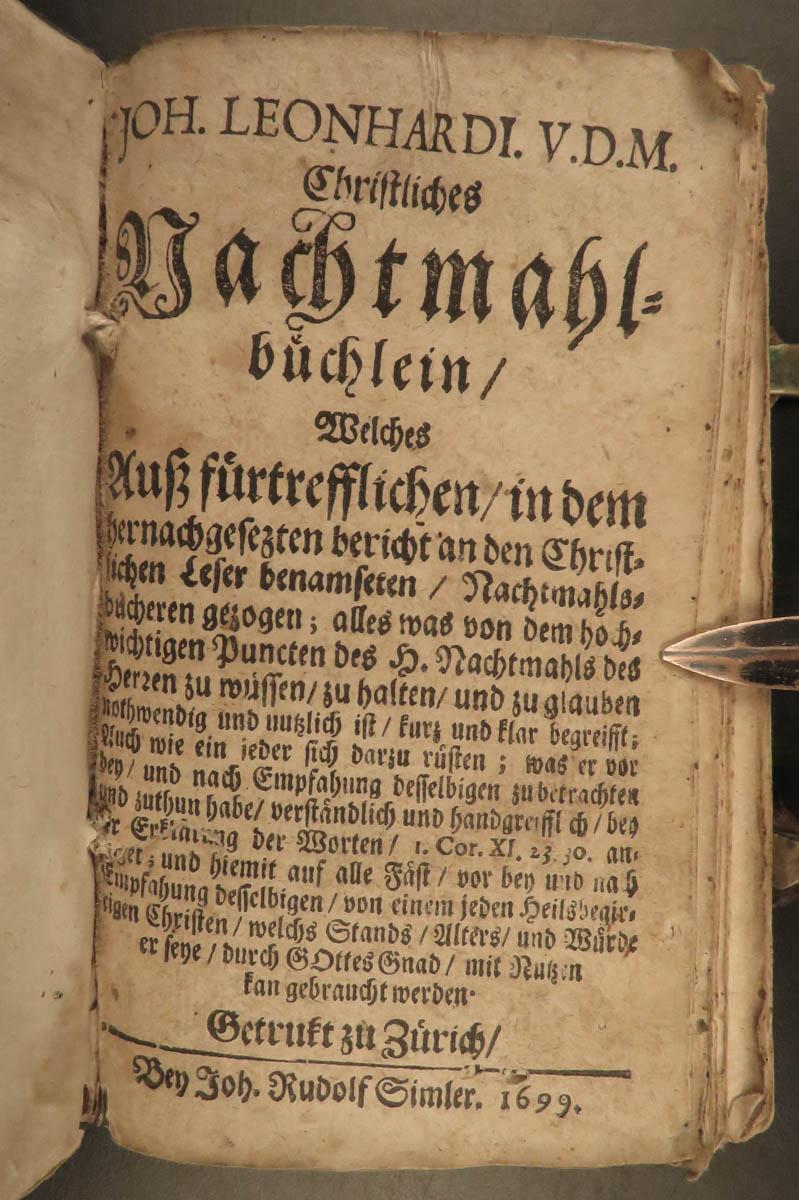 JOH. LEONHARDI. V.D.M.
Christliches
Nachtmahl-
büchlein/
Welches
Auß fürtrefflichen/in dem
hernachgesezten bericht an den Christ-
lichen Leser benamseten / Nachtmahls-
bücheren gezogen; alles was von dem hoch-
wichtigen Puncten des H. Nachtmahls des
Herzen zu wüssen/zu halten/ und zu glauben
nothwendig und nutzlich ist / kurz und klar begreifft;
Auch wie ein jeder sich darzu rüsten ; was er vor
bey/ und nach Empfahung desselbigen zubetrachten
und zuthun habe/ verständlich und handgreifflich/ bey
der Erklärung der Worten/ 1. Cor. XI. 23. 30. an-
und hiemit auf alle Fäst / vor bey und nach
Empfahung desselbigen / von einem jeden Heilsbegir-
rigen Christen / welchs Stands / Alters/ und Würde
er seye / durch GOttes Gnad / mit Nutzen
kan gebraucht werden.
Getrukt zu Zürich/
Bey Joh. Rudolf Simler. 1699.